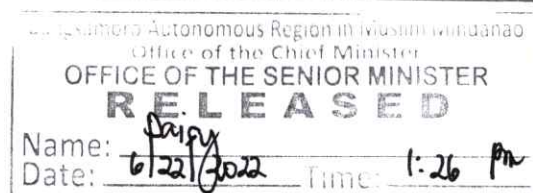 Bangsamoro Autonomous Region in Muslim Mindanao
Office of the Chief Minister
OFFICE OF THE SENIOR MINISTER
RELEASED
Name:
Date: 6/22/2022 Time: 1:26 pm